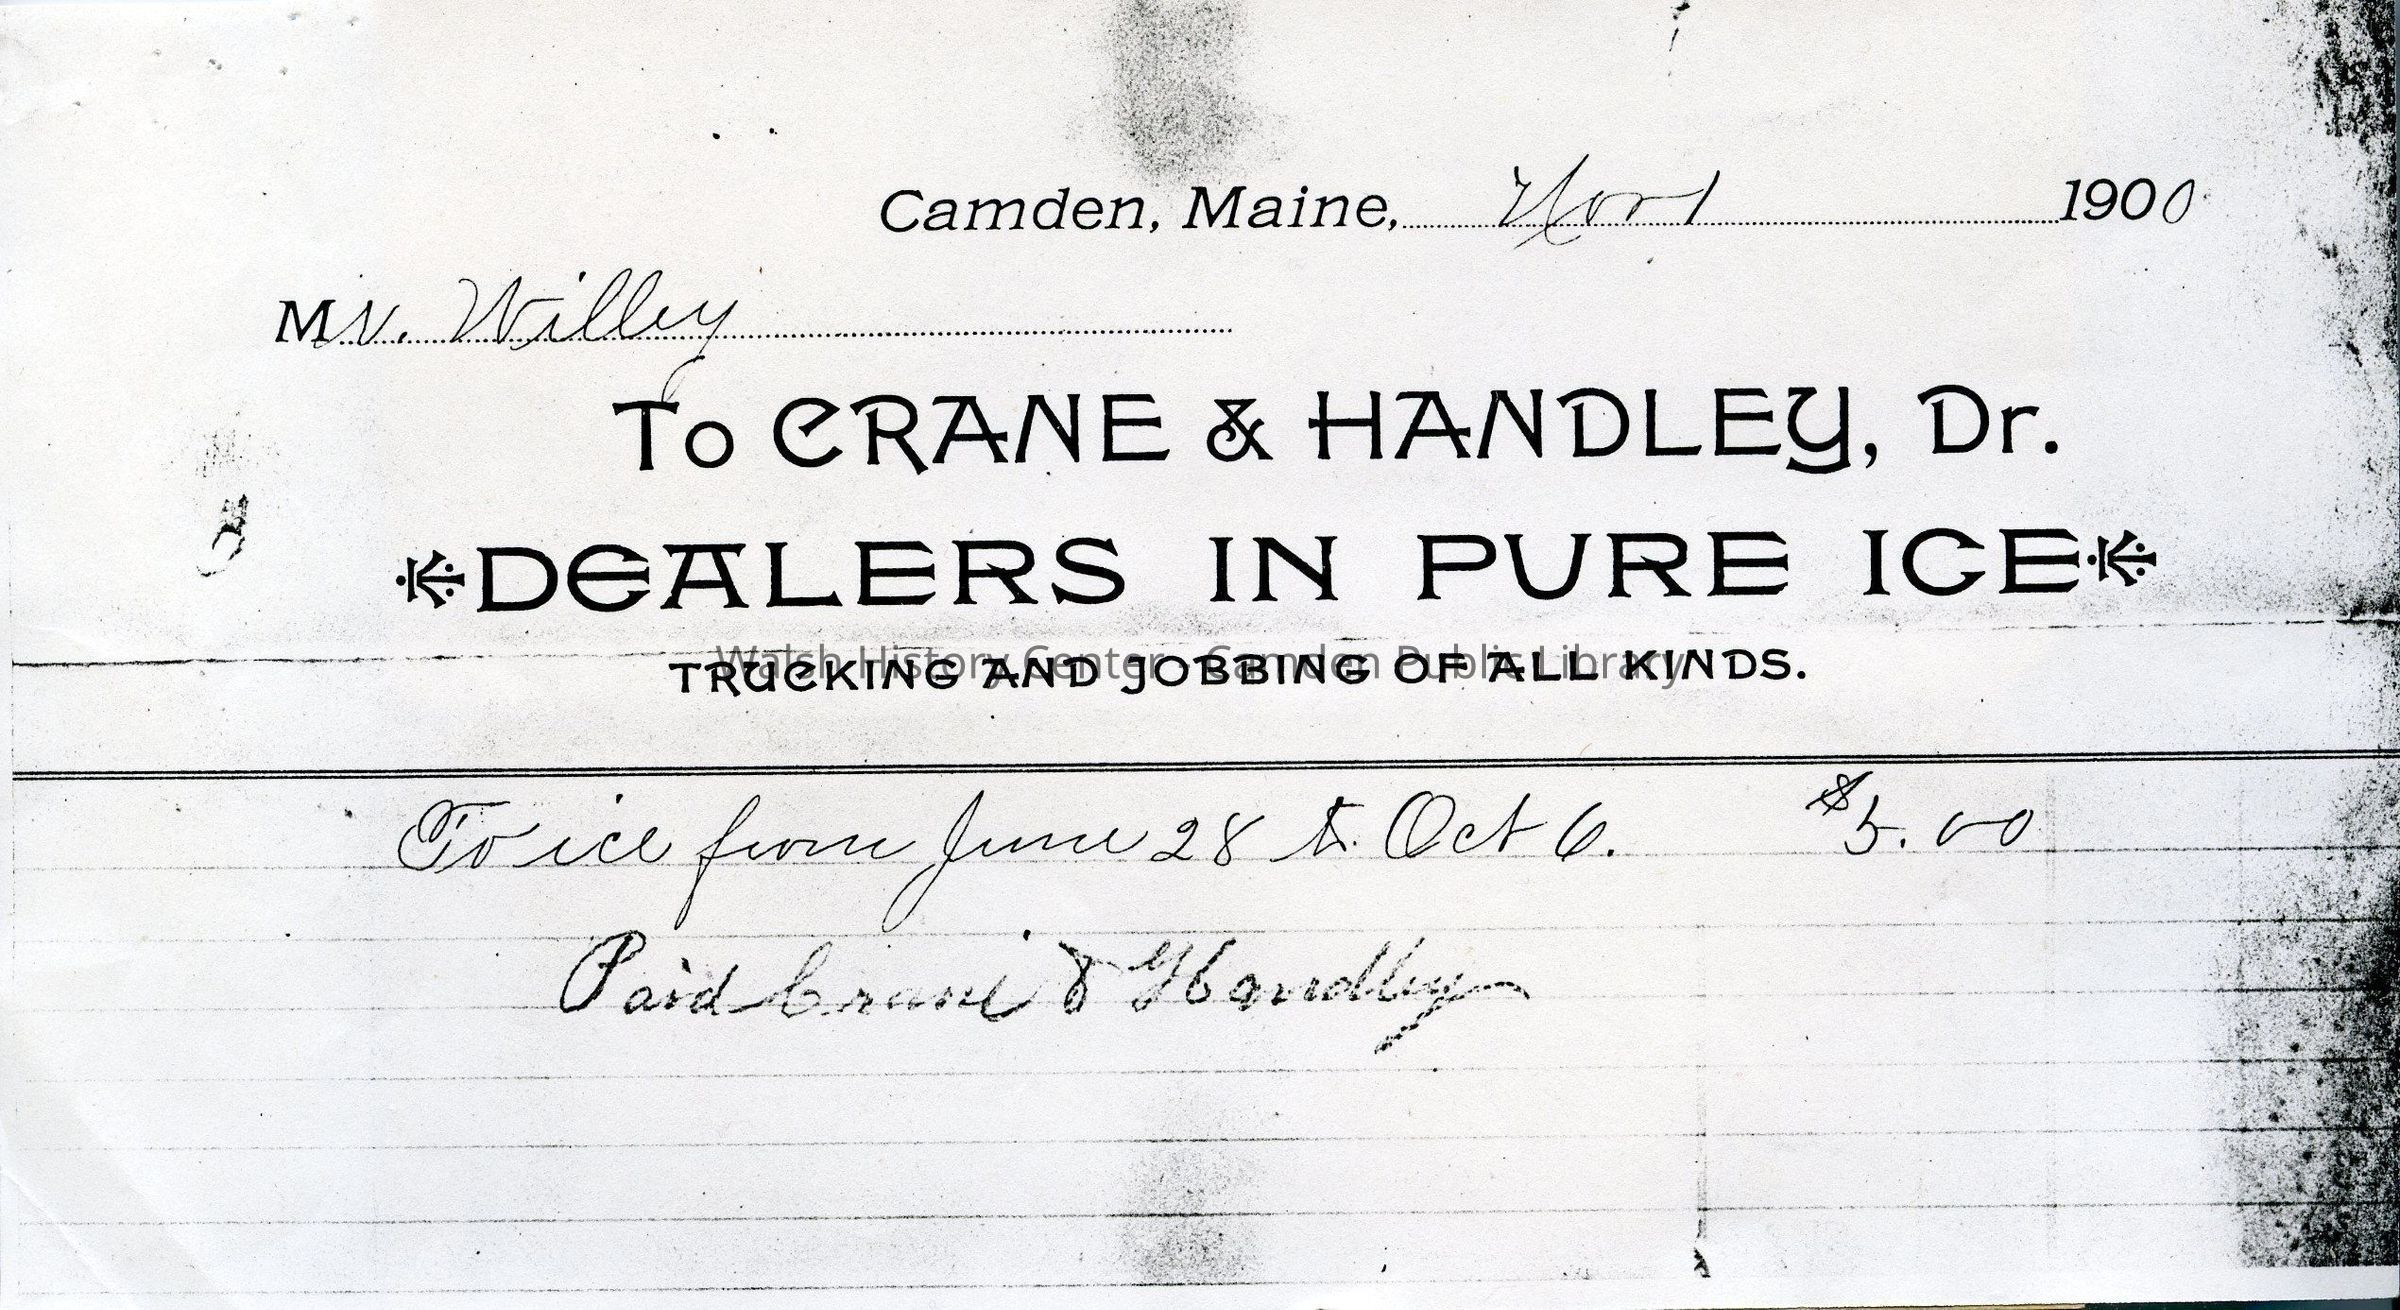 Camden, Maine, Nov 1 1900
Mr. Willey
To CRANE & HANDLEY, Dr.
DEALERS IN PURE ICE
TRUCKING AND JOBBING OF ALL KINDS.
Walsh History Center - Camden Public Library
To ice from June 28 to Oct 6. $5.00
Paid Crane & Handley